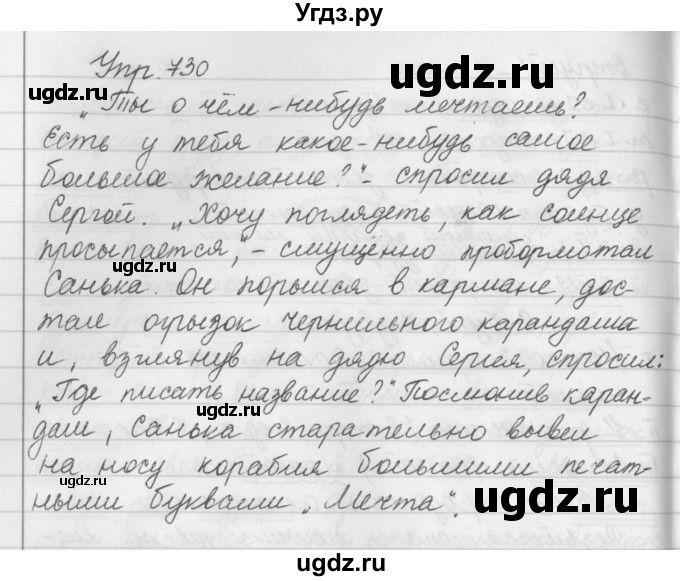 Угдз.ру
Упр. 730
"Ты о чём-нибудь мечтаешь?
Есть у тебя какое-нибудь самое
большое желание?" - спросил дядя
Сергей. "Хочу поглядеть, как солнце
просыпается", - смущенно пробормотал
Санька. Он порылся в кармане, дос-
тал огрызок чернильного карандаша
и, взглянув на дядю Сергея, спросил:
"Где писать название?" Послюнив каран-
даш, Санька старательно вывел
на носу корабля большими печат-
ными буквами "Мечта".
ugdz.ru
ugdz.ru
ugdz.ru
ugdz.ru
ugdz.ru
ugdz.ru